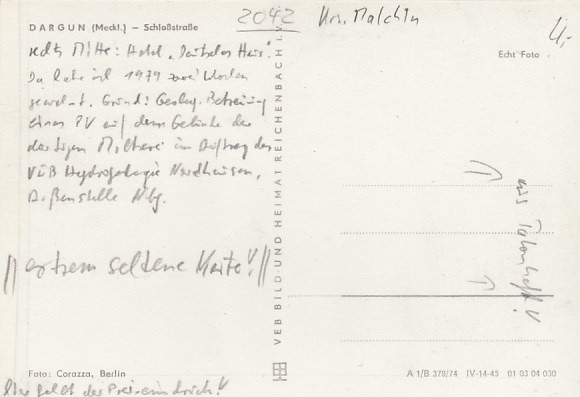 2042 Krs. Malchin
4,-
DARGUN (Meckl.) – Schloßstraße
Echt Foto
rechts Mitte: Hotel „Deutsches Haus".
Da habe ich 1979 zwei Wochen
gewohnt. Grund: Geolog. Betreuung
eines PV auf dem Gelände der
dortigen Molkerei im Auftrag des
VEB Hydrogeologie Nordhausen,
Außenstelle Nbg.
// extrem seltene Karte! //
VEB BILD UND HEIMAT REICHENBACH I. V.
aus
Foto: Corazza, Berlin
A 1/B 378/74 IV-14-45 01 03 04 030
Hier geht der Preis